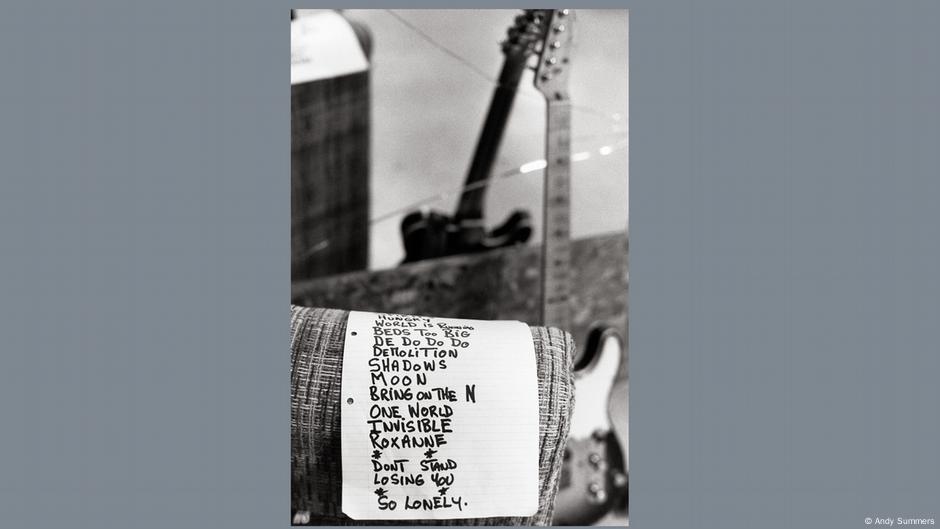 HUNGRY
WORLD IS RUNNING
BEDS TOO BIG
DE DO DO DO
DEMOLITION
SHADOWS
MOON
BRING ON THE N
ONE WORLD
INVISIBLE
ROXANNE
* *
DONT STAND
LOSING YOU
* *
SO LONELY.
© Andy Summers